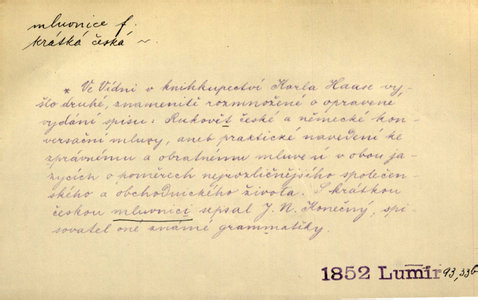 mluvnice f.
krátká česká ~.
* Ve Vídni v knihkupectví Karla Haase vy-
šlo druhé, znamenitě rozmnožené a opravené
vydání spisu: Rukověť české a německé kon-
versační mluvy, aneb praktické navedení ke
správnému a obratnému mluvení v obou ja-
zycích o poměrech nejrozličnějšího společen-
ského a obchodnického života. S krátkou
českou mluvnicí sepsal J. N. Konečný, spi-
sovatel oné známé grammatiky.
1852 Lumír 93, 336